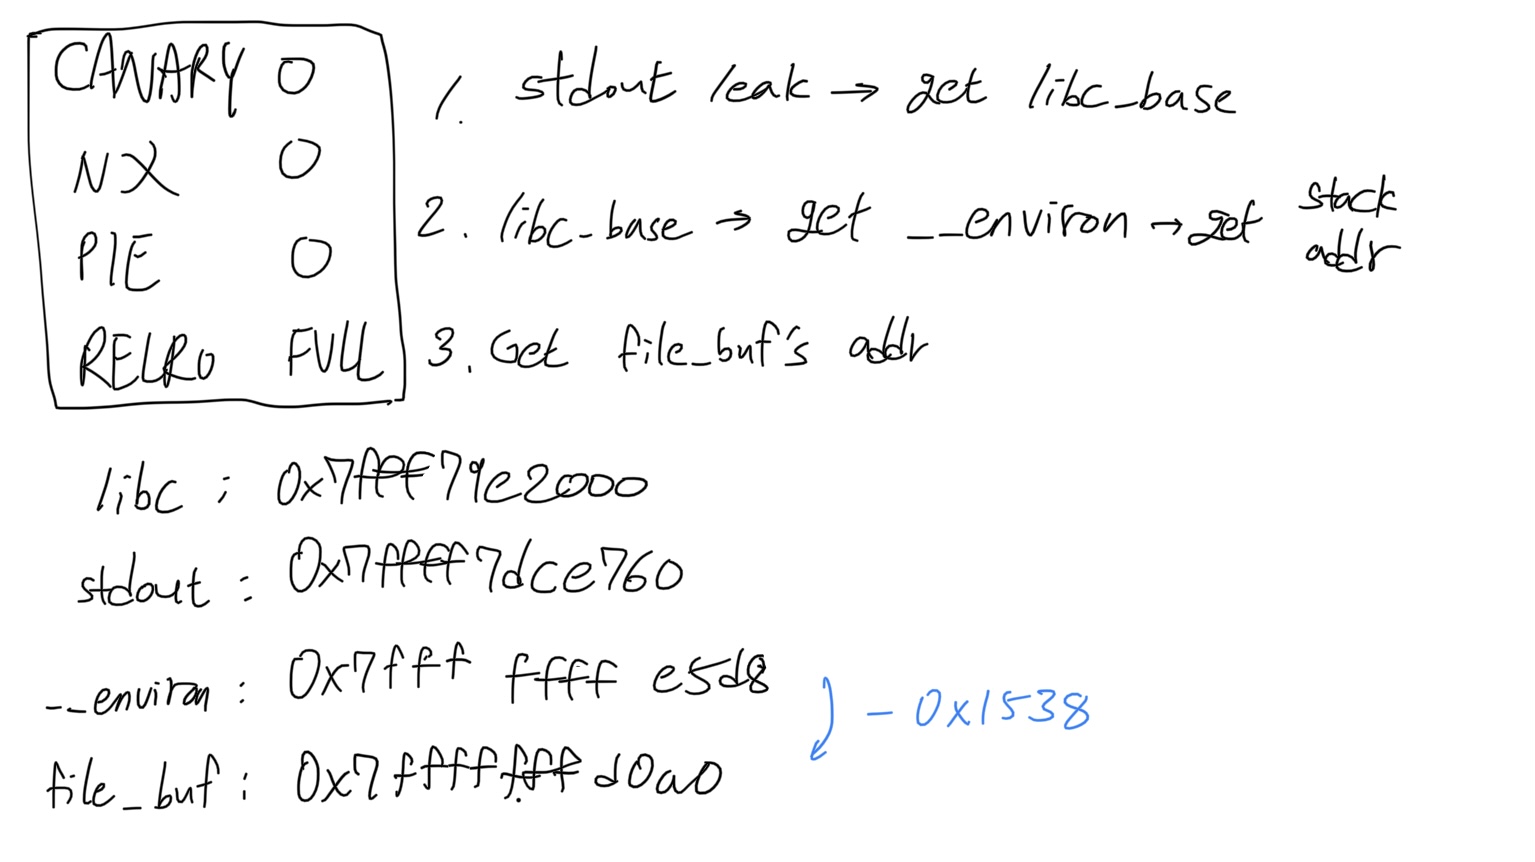 CANARY O
NX O
PIE O
RELRO FULL
1. stdout leak → get libc_base
2. libc_base → get __environ → get stack addr
3. Get file_buf's addr
libc : 0x7ffff79e2000
stdout : 0x7ffff7dce760
__environ : 0x7fff ffff e5d8
file_buf : 0x7fffffffd0a0
- 0x1538